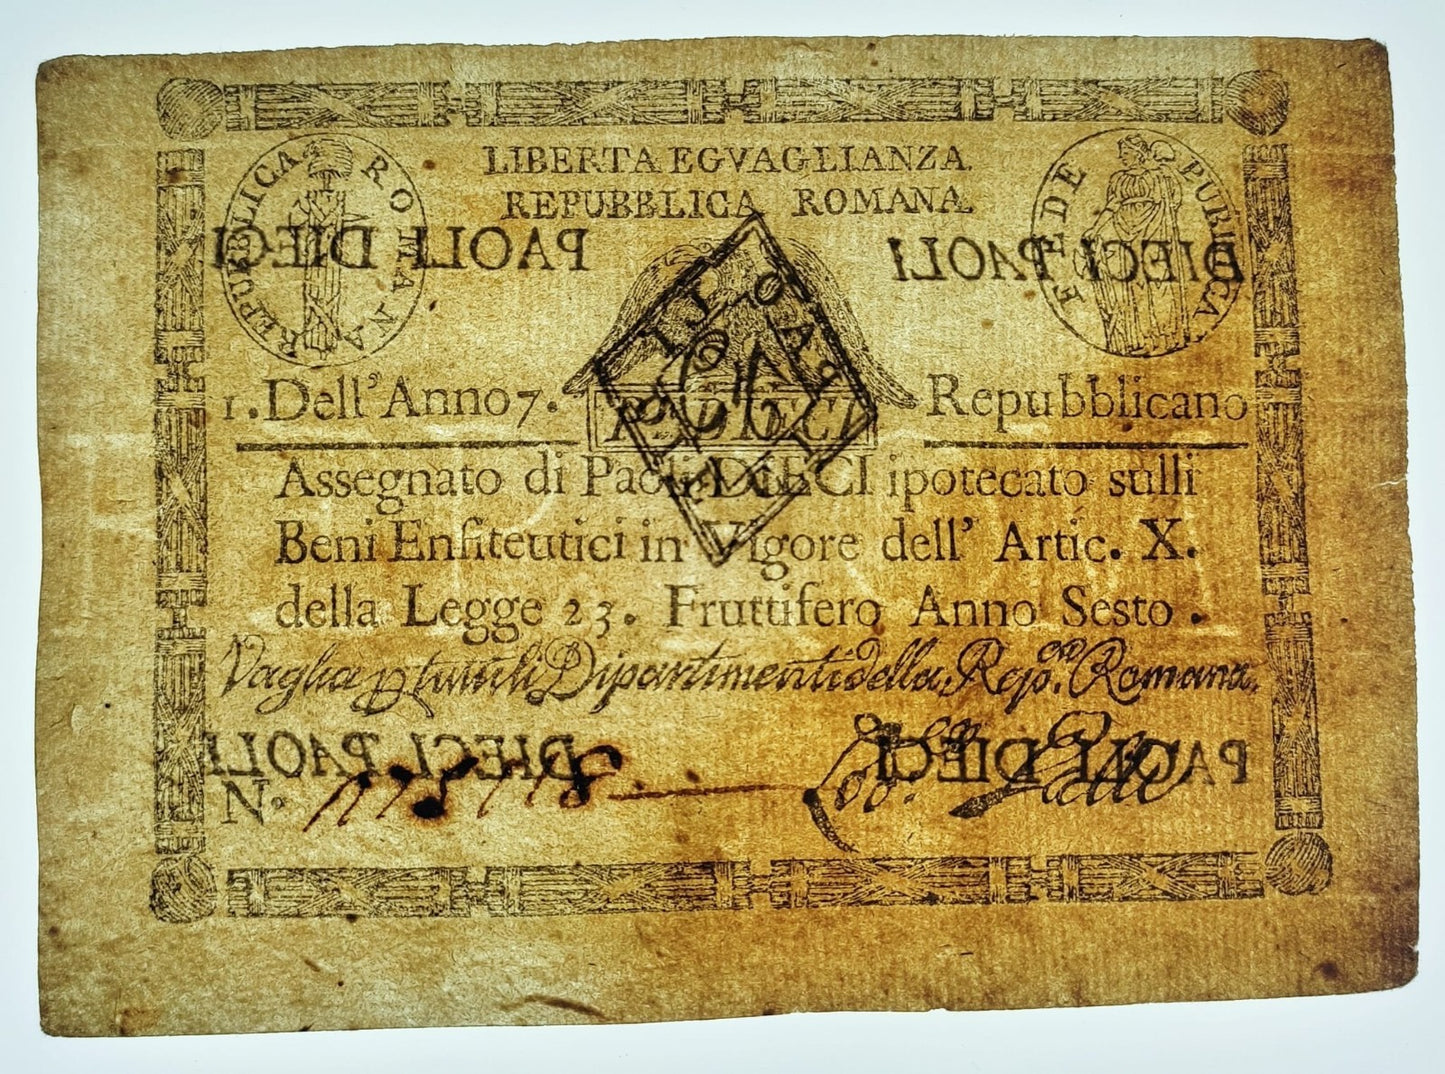 LIBERTA EGVAGLIANZA
REPUBBLICA ROMANA
REPUBBLICA ROMANA
FEDE PUBRICA
PAOLI DIECI
DIECI PAOLI
PAOLI
1. Dell' Anno 7. Repubblicano
P. DIECI
Assegnato di Paoli DIECI ipotecato sulli
Beni Enfiteutici in Vigore dell' Artic. X.
della Legge 23. Fruttifero Anno Sesto.
Vaglia p tutti li Dipartimenti della Rep. Romana.
DIECI PAOLI
PAOLI DIECI
N.